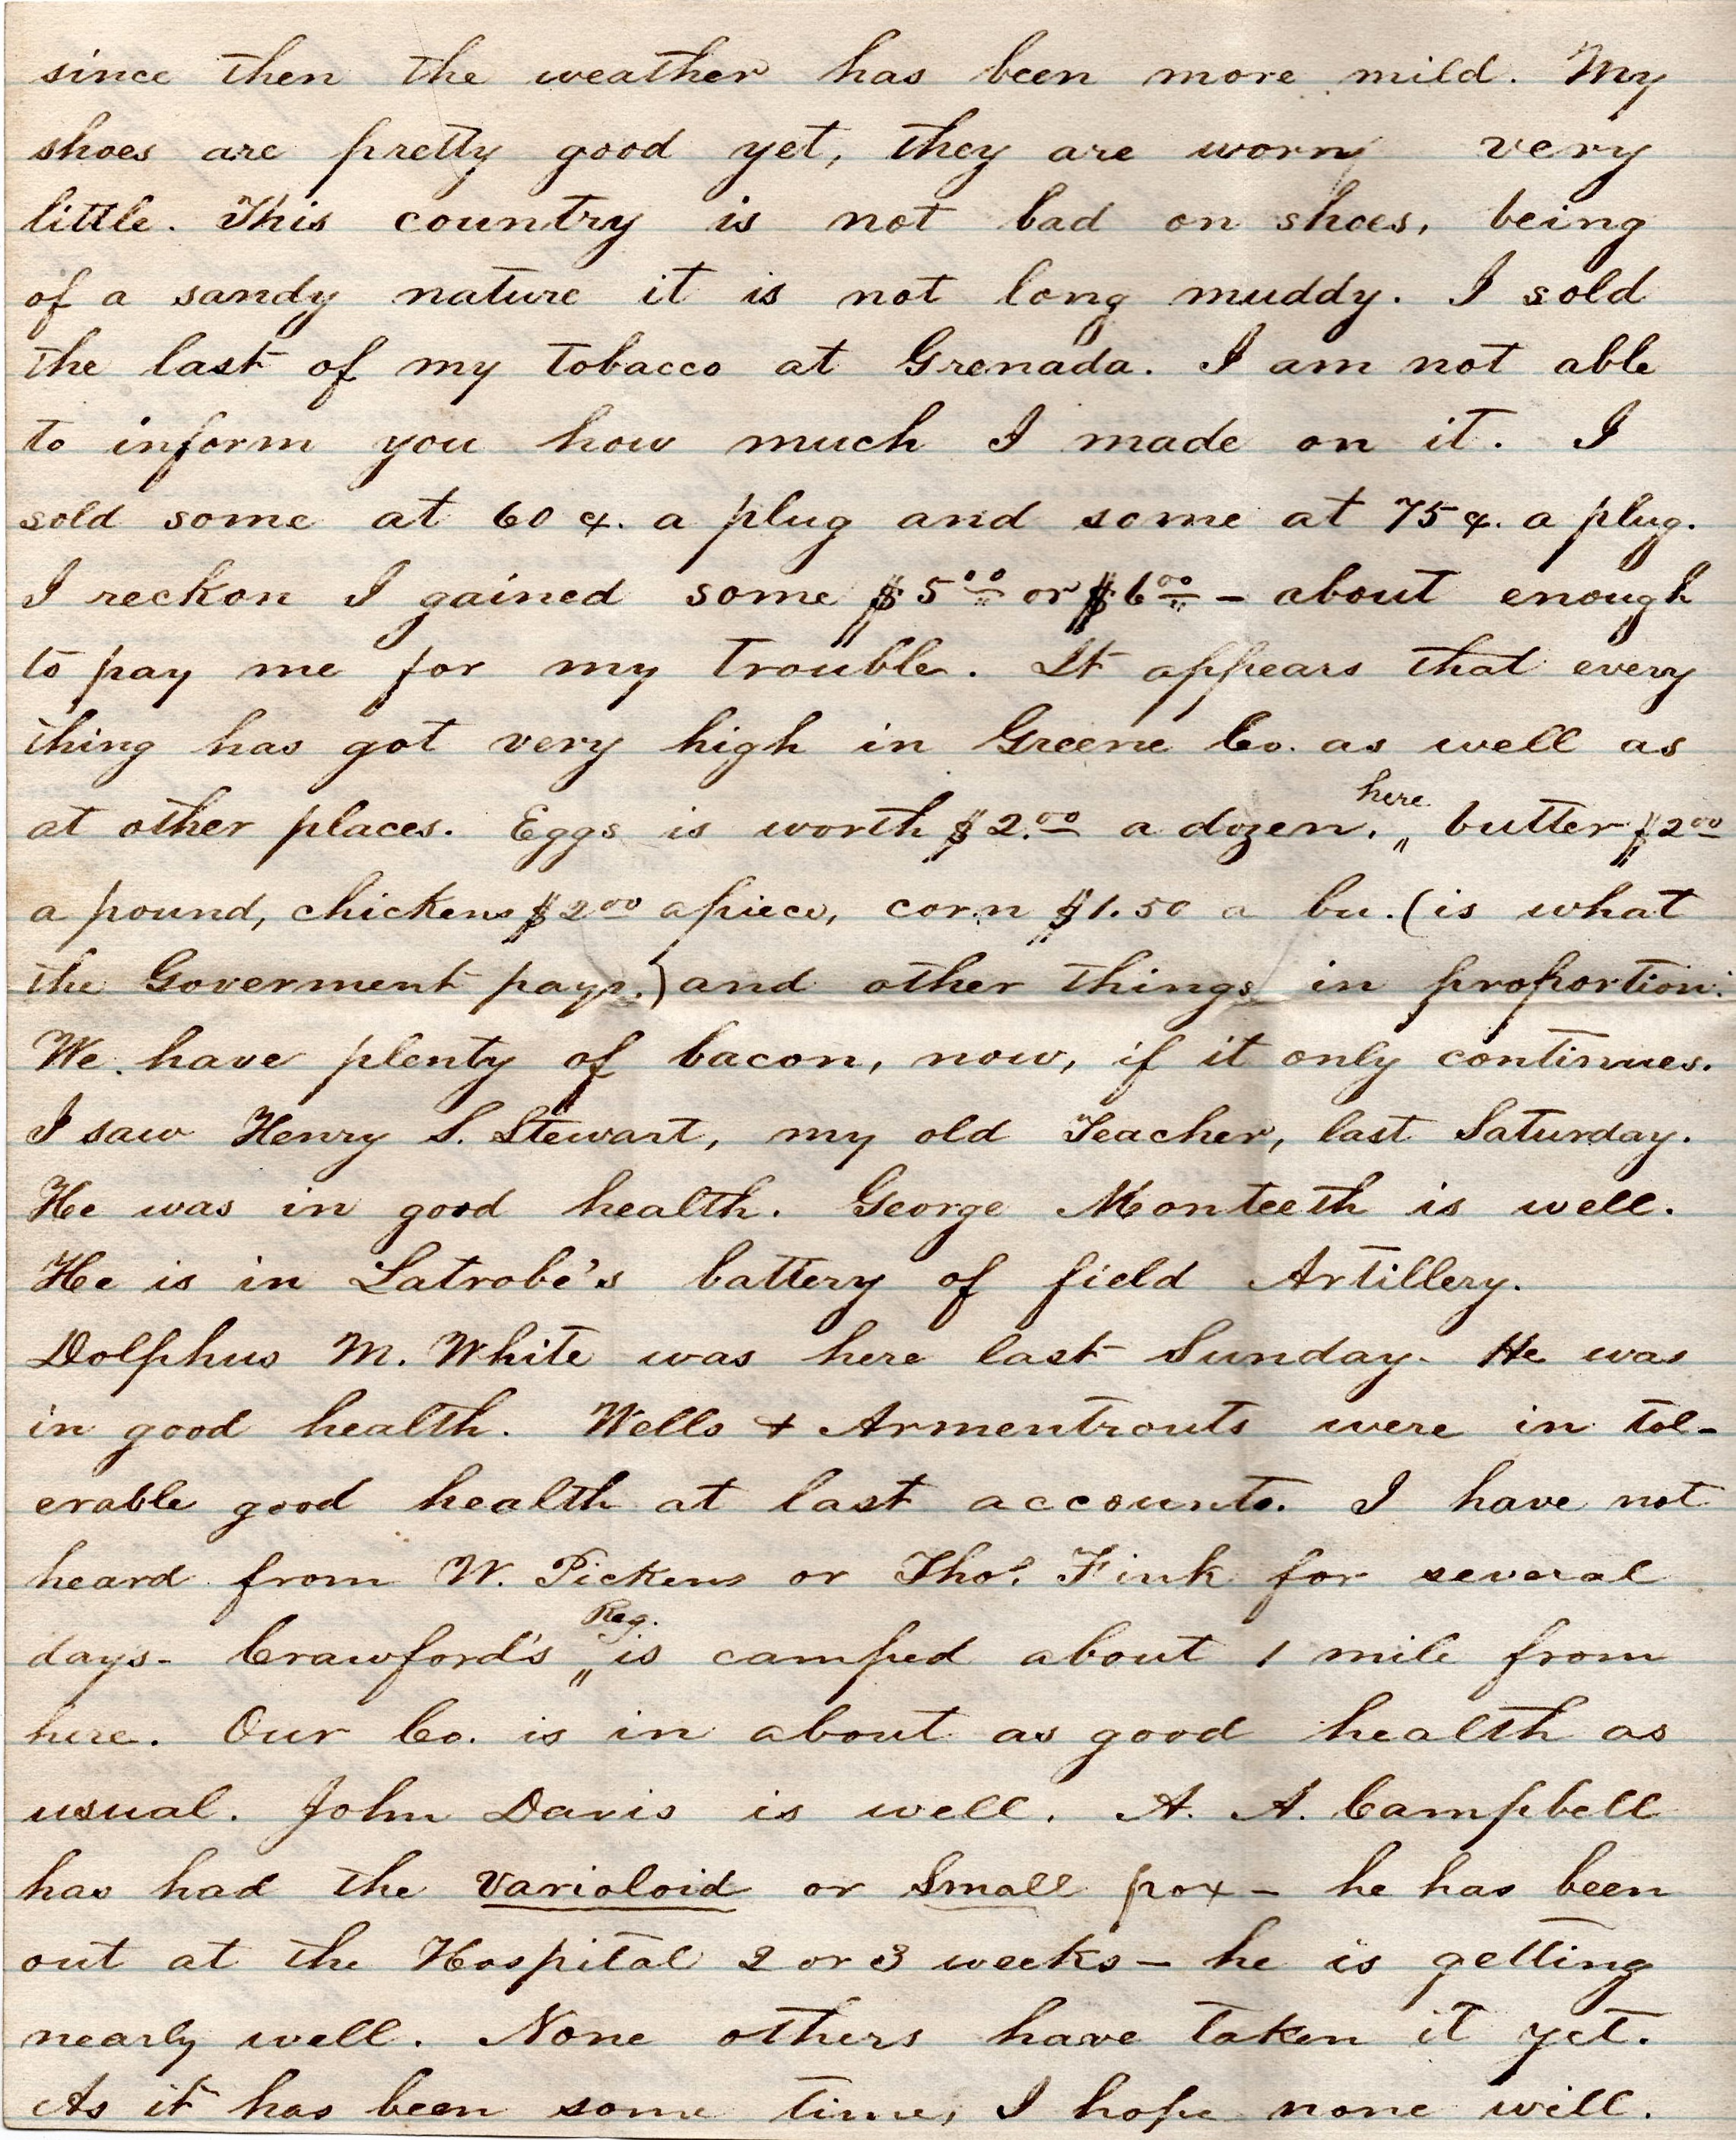 since then the weather has been more mild. My
shoes are pretty good yet, they are worn very
little. This country is not bad on shoes, being
of a sandy nature it is not long muddy. I sold
the last of my tobacco at Grenada. I am not able
to inform you how much I made on it. I
sold some at 60 ¢. a plug and some at 75 ¢. a plug.
I reckon I gained some $5.00 or $6.00 – about enough
to pay me for my trouble. It appears that every
thing has got very high in Greene Co. as well as
here
at other places. Eggs is worth $2.00 a dozen,„ butter $2.00
a pound, chickens $2.00 apiece, corn $1.50 a bu. (is what
the Goverment pays.) and other things in proportion.
We have plenty of bacon, now, if it only continues.
I saw Henry S. Stewart, my old Teacher, last Saturday.
He was in good health. George Monteeth is well.
He is in Latrobe's battery of field Artillery.
Dolphus M. White was here last Sunday. He was
in good health. Wells & Armentrouts were in tol-
erable good health at last accounts. I have not
heard from W. Pickens or Thos. Fink for several
Reg.
days - Crawford's „ is camped about 1 mile from
here. Our Co. is in about as good health as
usual. John Davis is well. A. A. Campbell
has had the varioloid or Small pox – he has been
out at the Hospital 2 or 3 weeks – he is getting
nearly well. None others have taken it yet.
As it has been some time, I hope none will.